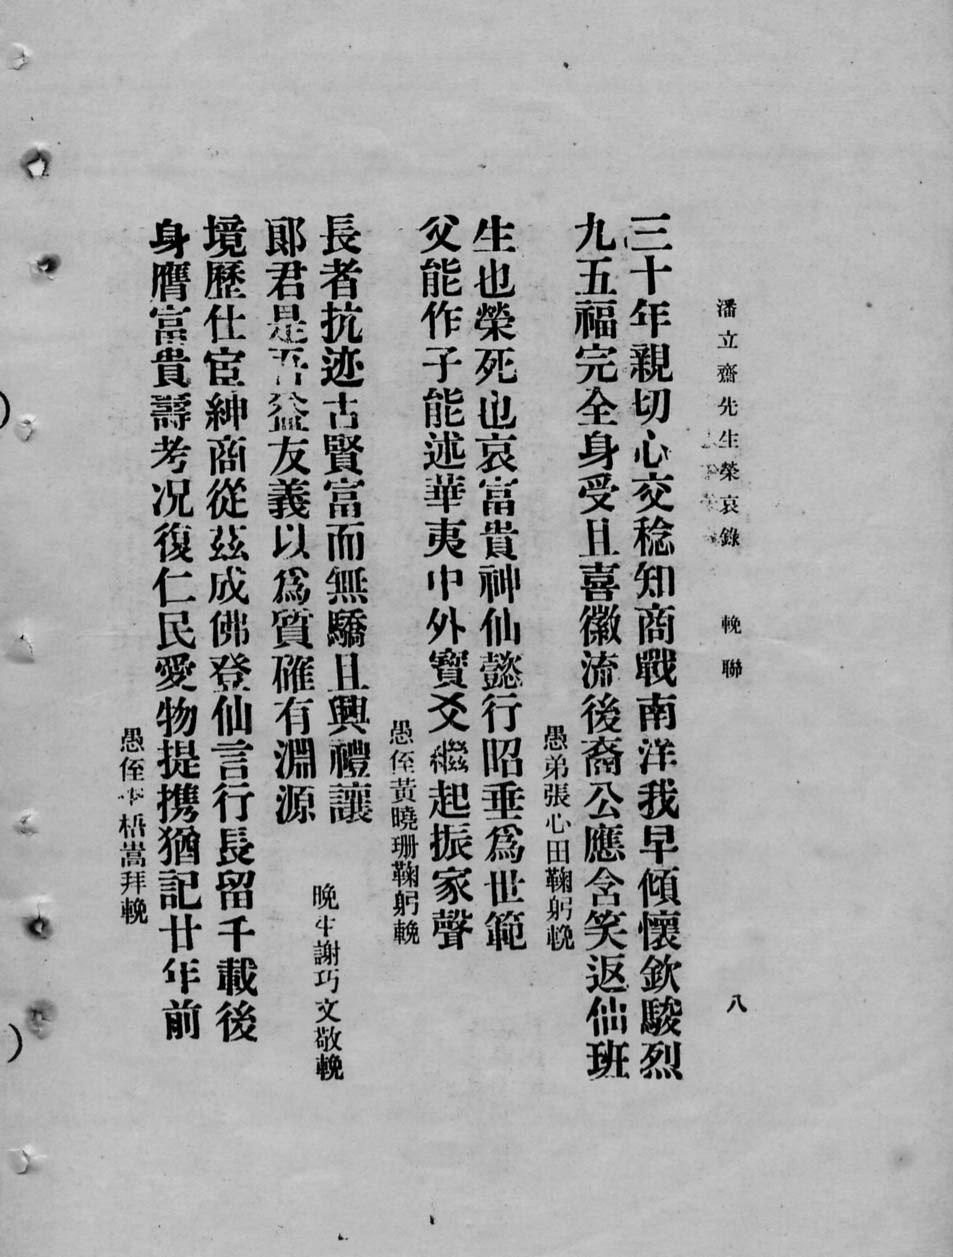 潘立齋先生榮哀錄　輓聯　八
三十年親切心交稔知商戰南洋我早傾懷欽駿烈
九五福完全身受且喜徽流後裔公應含笑返仙班
愚弟張心田鞠躬輓
生也榮死也哀富貴神仙懿行昭垂爲世範
父能作子能述華夷中外寶爻繼起振家聲
愚侄黃曉珊鞠躬輓
長者抗迹古賢富而無驕且興禮讓
郞君是吾益友義以爲質確有淵源
晚生謝巧文敬輓
境歷仕宦紳商從茲成佛登仙言行長留千載後
身膺富貴壽考况復仁民愛物提携猶記廿年前
愚侄梧嵩拜輓